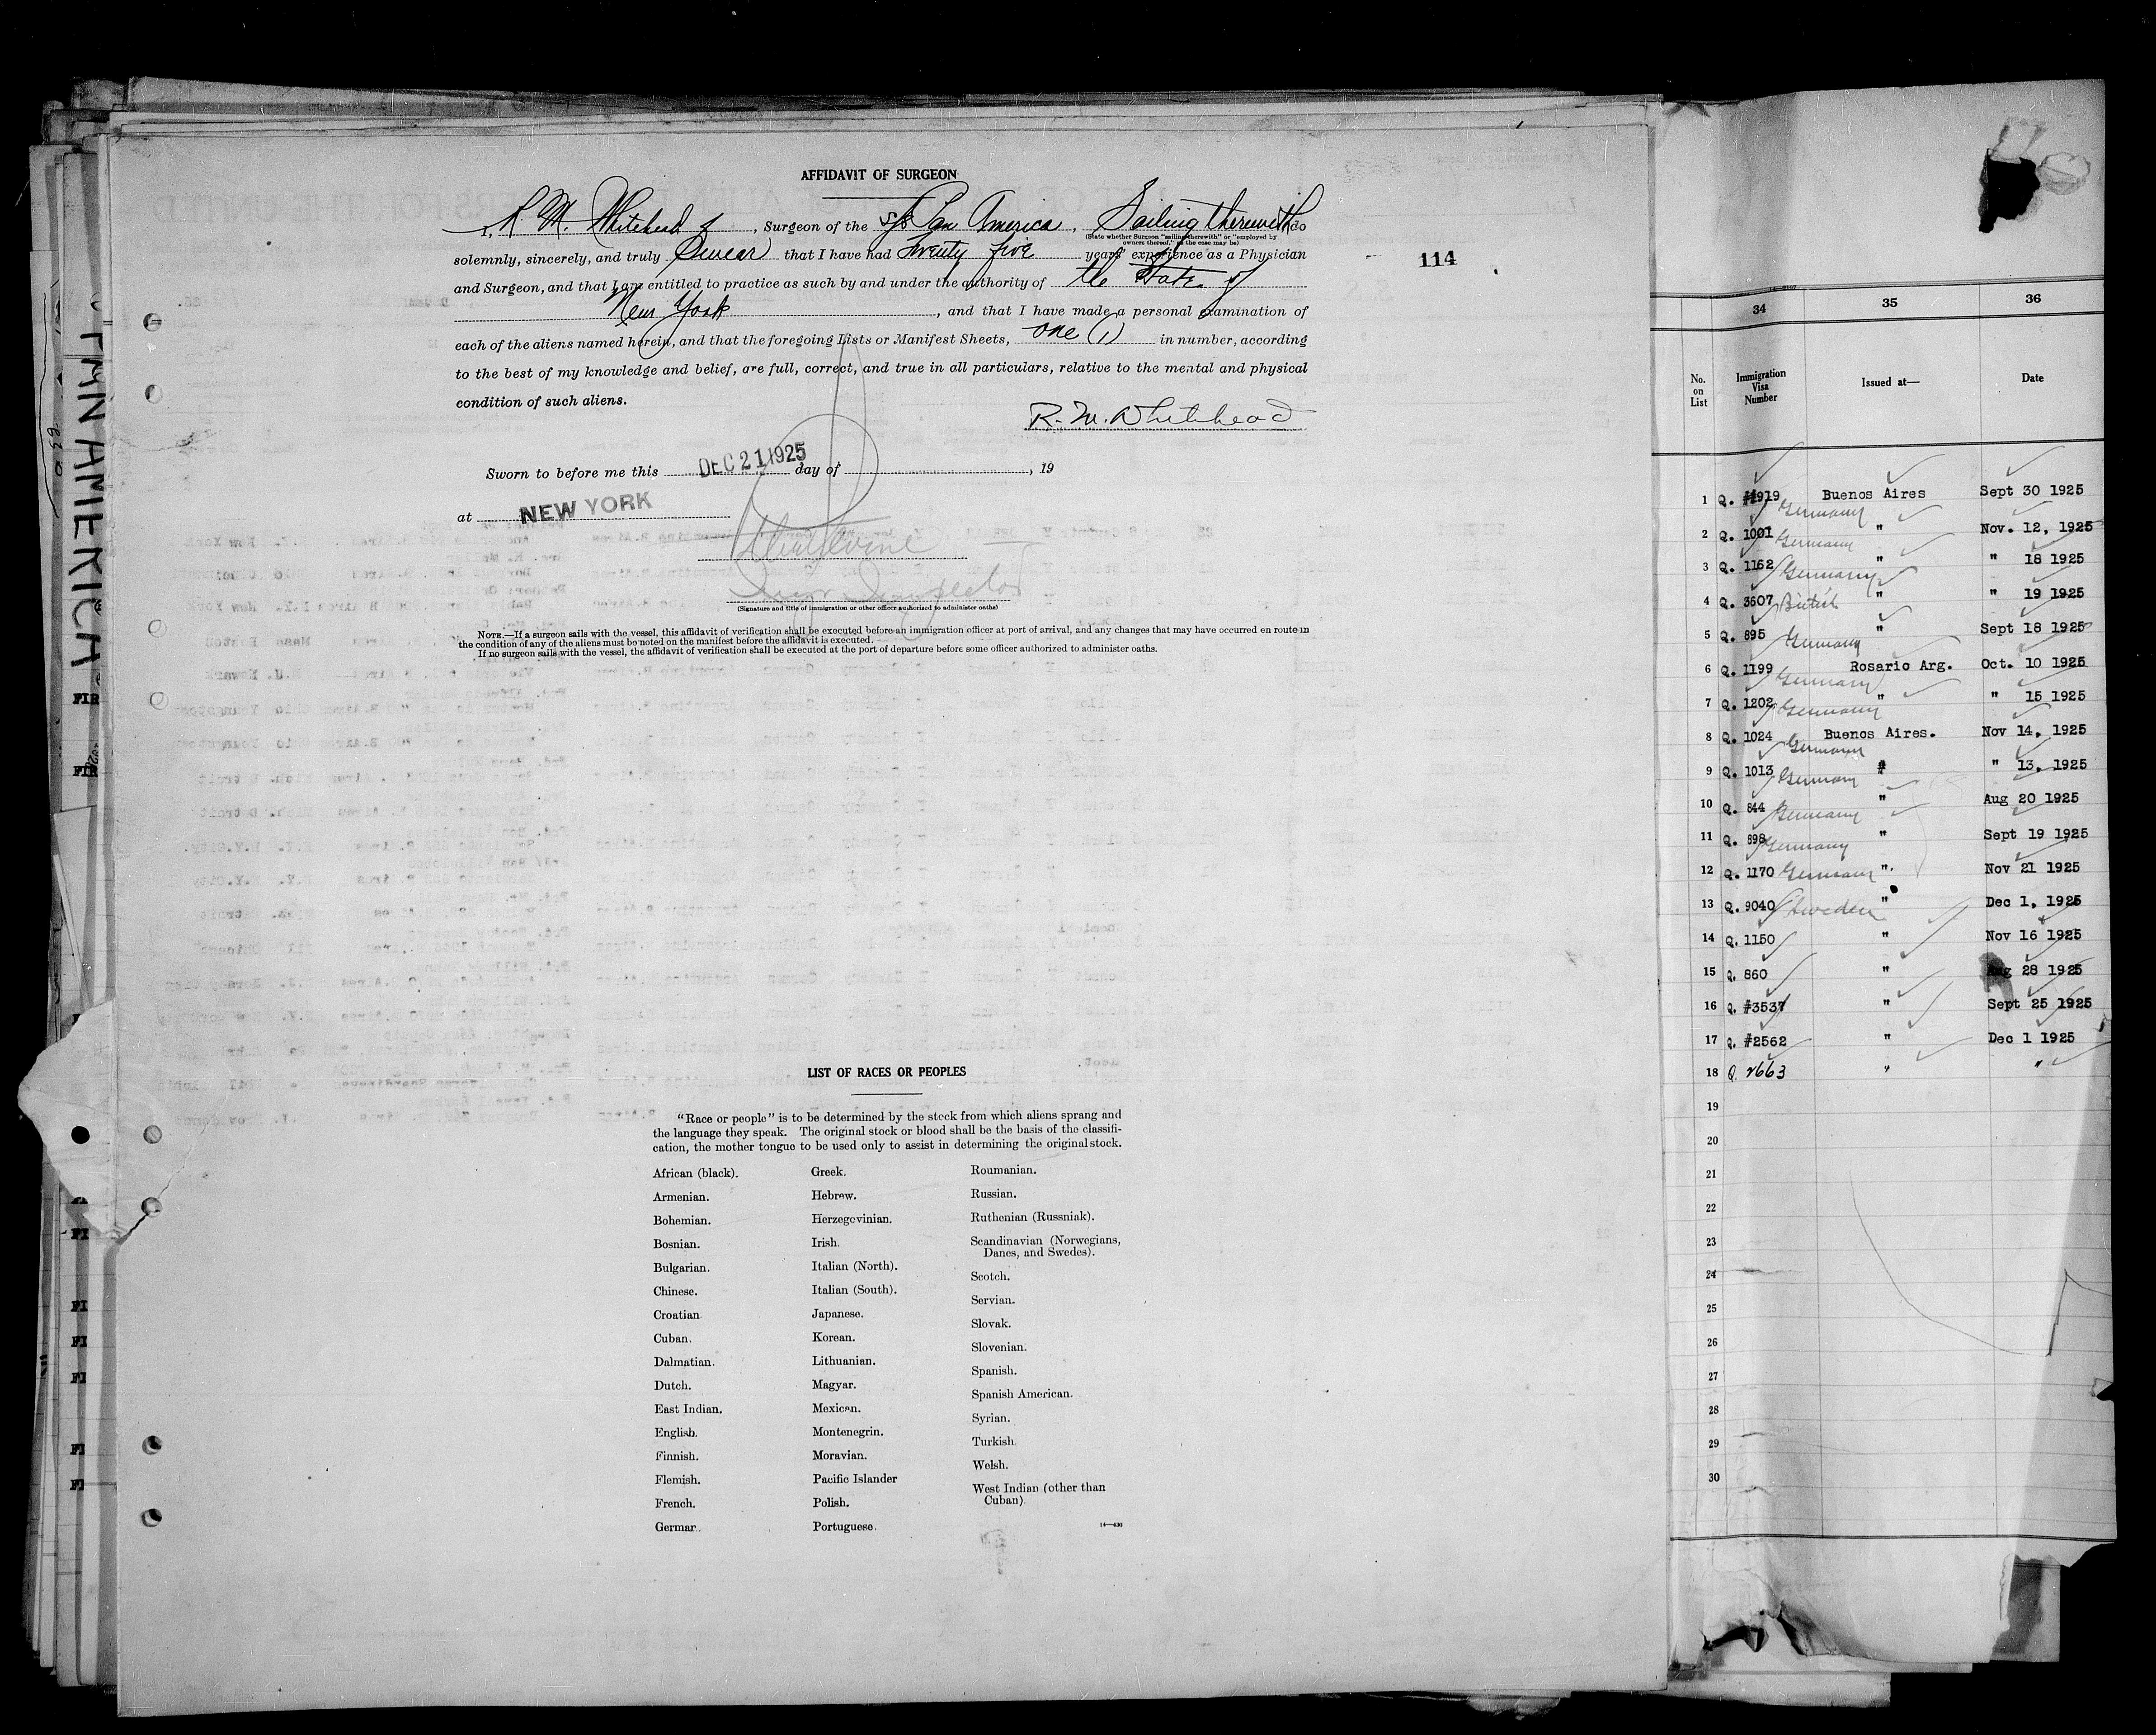 AFFIDAVIT OF SURGEON
I, R. M. Whitehead, Surgeon of the S/S Pan America, Sailing therewith do
(State whether Surgeon "sailing therewith" or "employed by
owners thereof," as the case may be)
solemnly, sincerely, and truly Swear that I have had Twenty five years' experience as a Physician
and Surgeon, and that I am entitled to practice as such by and under the authority of the State of
New York, and that I have made a personal examination of
each of the aliens named herein, and that the foregoing Lists or Manifest Sheets, one (1) in number, according
to the best of my knowledge and belief, are full, correct, and true in all particulars, relative to the mental and physical
condition of such aliens.
R. M. Whitehead
Sworn to before me this DEC 21 1925 day of , 19
at NEW YORK
Inspector
(Signature and title of immigration or other officer authorized to administer oaths)
NOTE.—If a surgeon sails with the vessel, this affidavit of verification shall be executed before an immigration officer at port of arrival, and any changes that may have occurred en route in
the condition of any of the aliens must be noted on the manifest before the affidavit is executed.
If no surgeon sails with the vessel, the affidavit of verification shall be executed at the port of departure before some officer authorized to administer oaths.
114
LIST OF RACES OR PEOPLES
"Race or people" is to be determined by the stock from which aliens sprang and
the language they speak. The original stock or blood shall be the basis of the classifi-
cation, the mother tongue to be used only to assist in determining the original stock.
African (black).
Armenian.
Bohemian.
Bosnian.
Bulgarian.
Chinese.
Croatian.
Cuban.
Dalmatian.
Dutch.
East Indian.
English.
Finnish.
Flemish.
French.
German.
Greek.
Hebrew.
Herzegovinian.
Irish.
Italian (North).
Italian (South).
Japanese.
Korean.
Lithuanian.
Magyar.
Mexican.
Montenegrin.
Moravian.
Pacific Islander
Polish.
Portuguese.
Roumanian.
Russian.
Ruthenian (Russniak).
Scandinavian (Norwegians,
Danes, and Swedes).
Scotch.
Servian.
Slovak.
Slovenian.
Spanish.
Spanish American.
Syrian.
Turkish.
Welsh.
West Indian (other than
Cuban).
14—430
34 35 36
No. on List Immigration Visa Number Issued at— Date
1 Q. #919 Germany Buenos Aires Sept 30 1925
2 Q. 1001 Germany " Nov. 12, 1925
3 Q. 1162 Germany " " 18 1925
4 Q. 3607 British " " 19 1925
5 Q. 895 Germany " Sept 18 1925
6 Q. 1199 Germany Rosario Arg. Oct. 10 1925
7 Q. 1202 Germany " " 15 1925
8 Q. 1024 Germany Buenos Aires. Nov 14, 1925
9 Q. 1013 Germany " " 13, 1925
10 Q. 844 Germany " Aug 20 1925
11 Q. 898 Germany " Sept 19 1925
12 Q. 1170 Germany " Nov 21 1925
13 Q. 9040 Sweden " Dec 1, 1925
14 Q. 1150 " Nov 16 1925
15 Q. 860 " Aug 28 1925
16 Q. #3537 " Sept 25 1925
17 Q. #2562 " Dec 1 1925
18 Q. 2663 " "
19
20
21
22
23
24
25
26
27
28
29
30